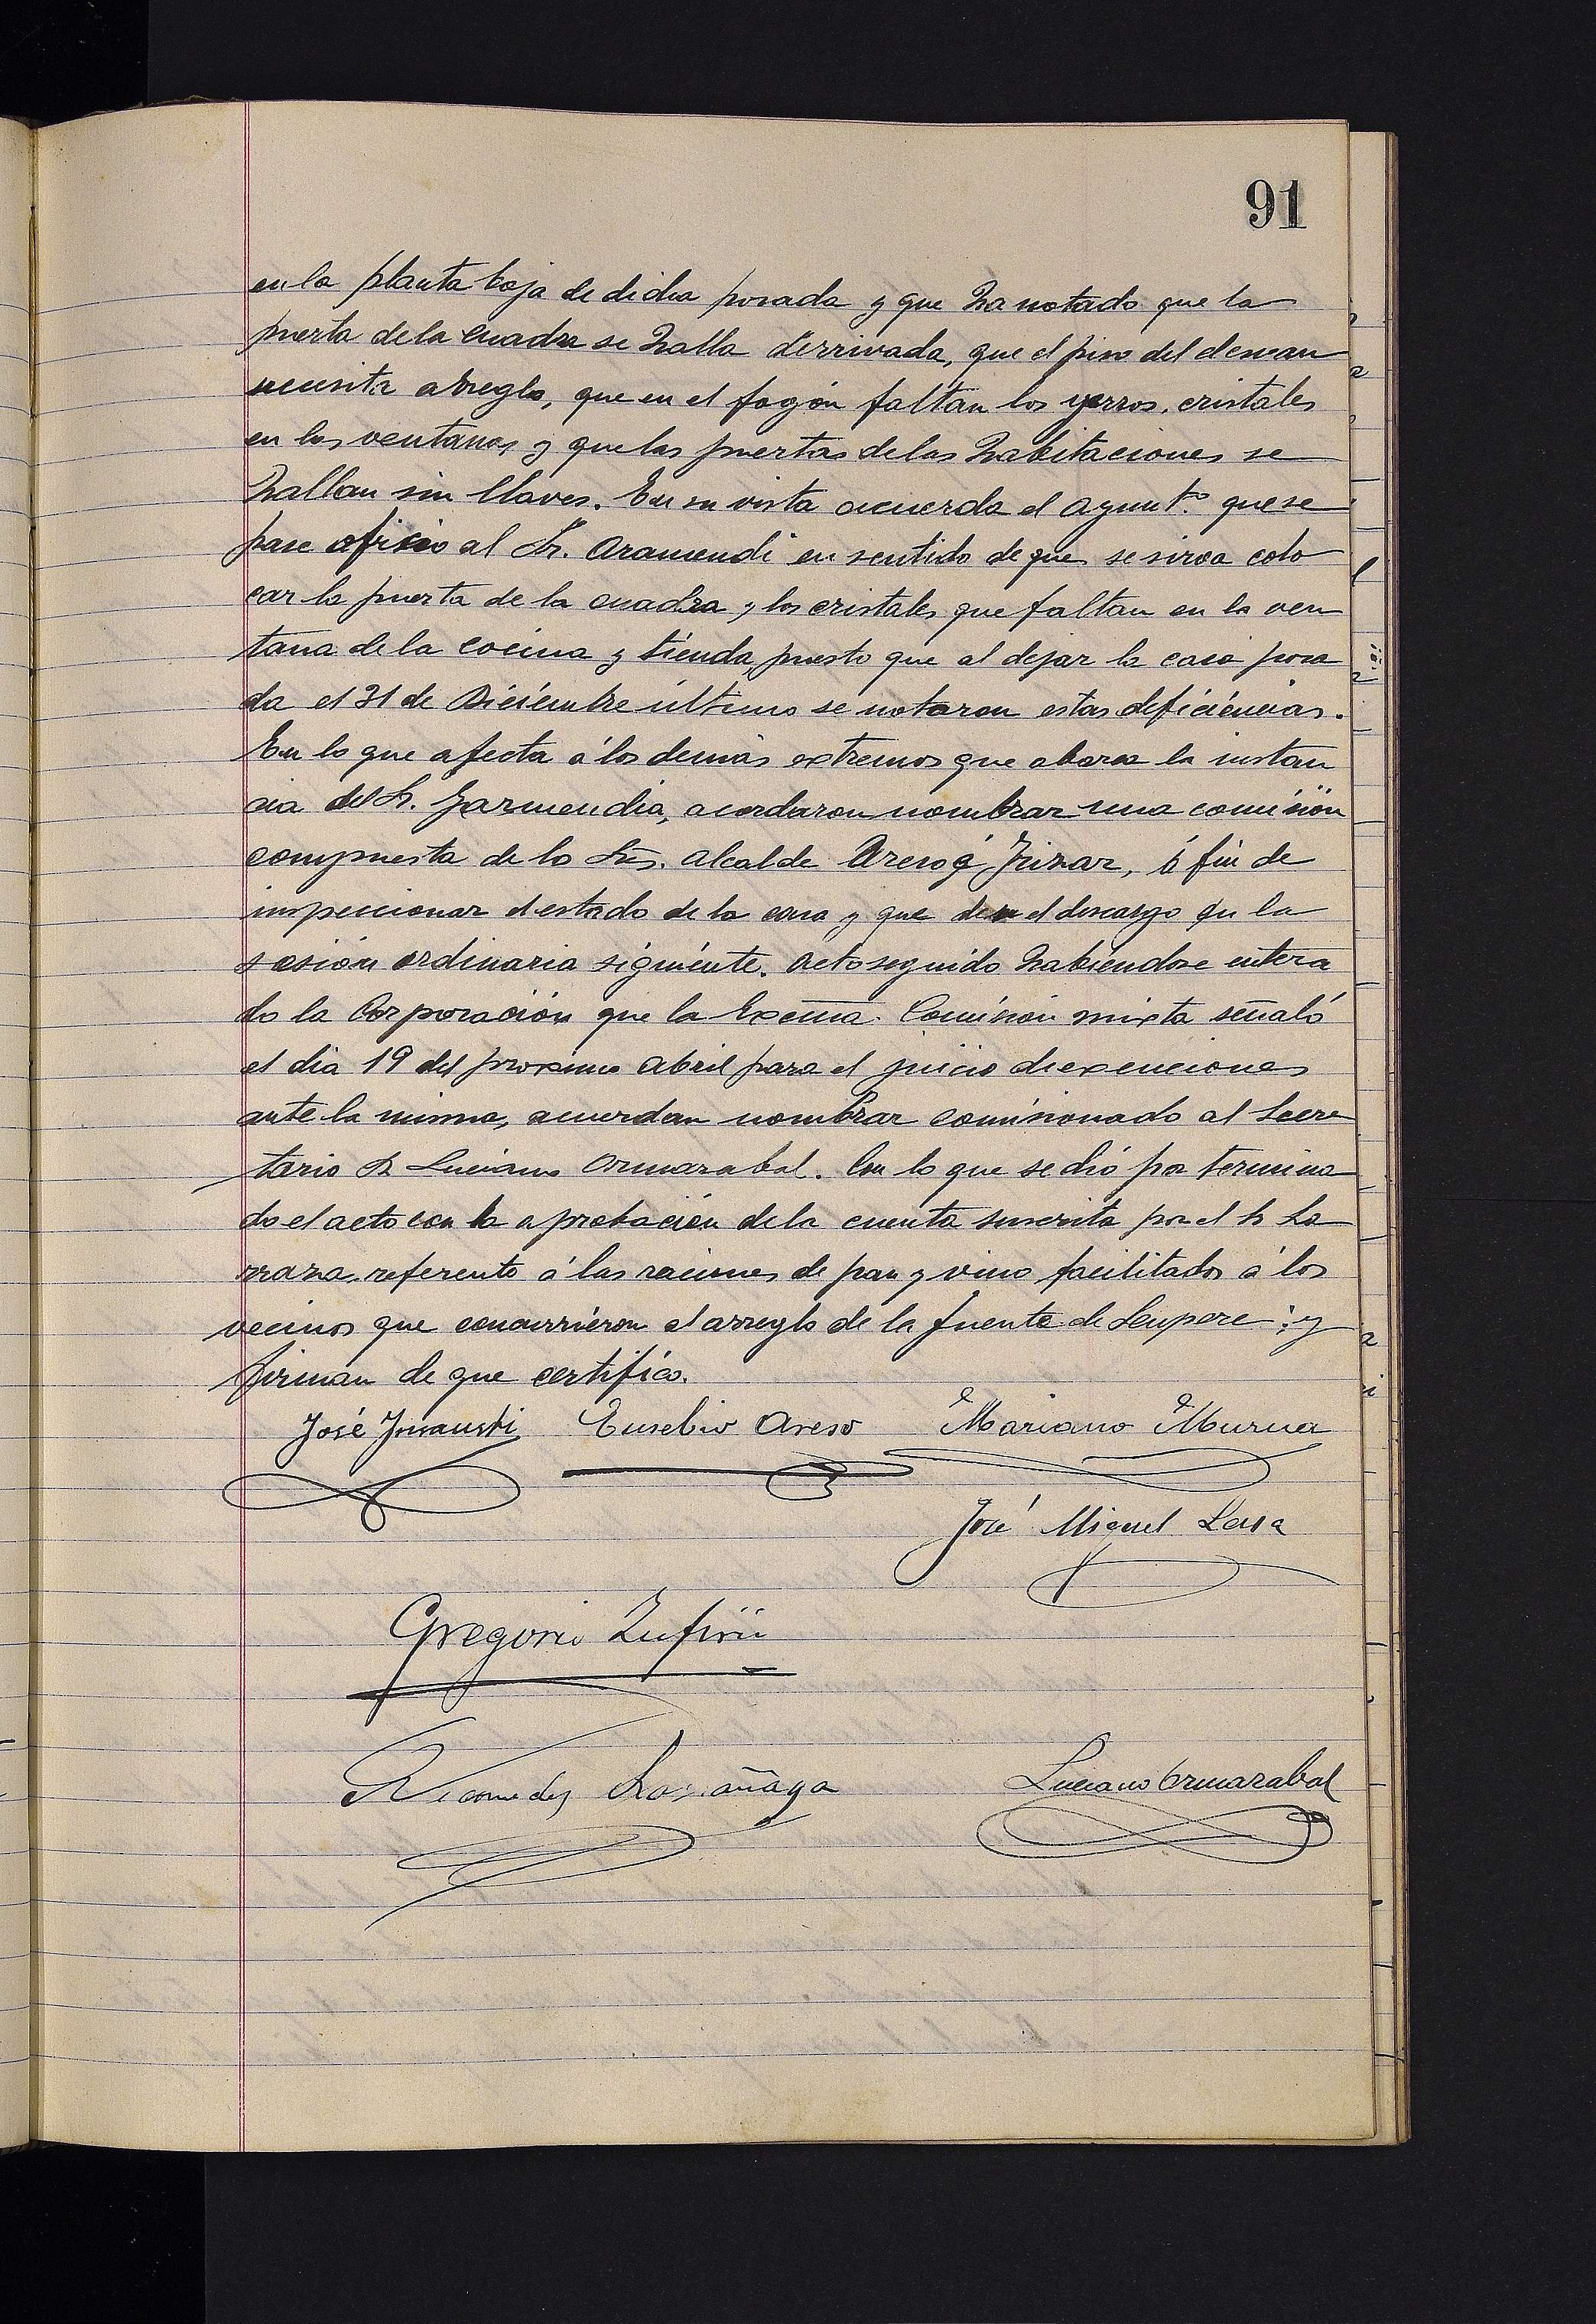 91
en la planta baja de dicha posada y que ha notado que la
puerta de la cuadra se halla derrivada, que el piso del desvan
necesita arreglo, que en el fogón faltan los yerros, cristales
en las ventanas y que las puertas de las habitaciones se
hallan sin llaves. En su vista acuerda el Ayunt.º que se
pase oficio al Sr. Aramendi en sentido de que se sirva colo
car la puerta de la cuadra y los cristales que faltan en la ven
tana de la cocina y tienda, puesto que al dejar la casa posa
da el 31 de Diciembre último se notaron estas deficiéncias.
En lo que afecta á los demás extremos que abarca la instan
cia del Sr. Garmendia, acordaron nombrar una comisión
compuesta de lo Sres. Alcalde Areso y, á fin de
inspeccionar el estado de la casa y que den el descargo en la
sesión ordinaria siguiénte. Acto seguido habiéndose entera
do la Corporación que la Excma. Comisión mixta señaló
el dia 19 del proximo Abril para el juicio de exenciones
ante la misma, acuerdan nombrar comisionado al Secre
tario Sr Luciano Ormazabal. Con lo que se dió por termina
do el acto con la aprobación de la cuenta suscrita por el Sr La
rraza referente á las raciones de pan y vino facilitados á los
vecinos que concurrieron al arreglo de la fuente de Leupere; y
firman de que certifico.
José Insausti Eusebio Areso Mariano Murua
José Miguel Lasa
Gregorio Zufiria
Luciano Ormazabal